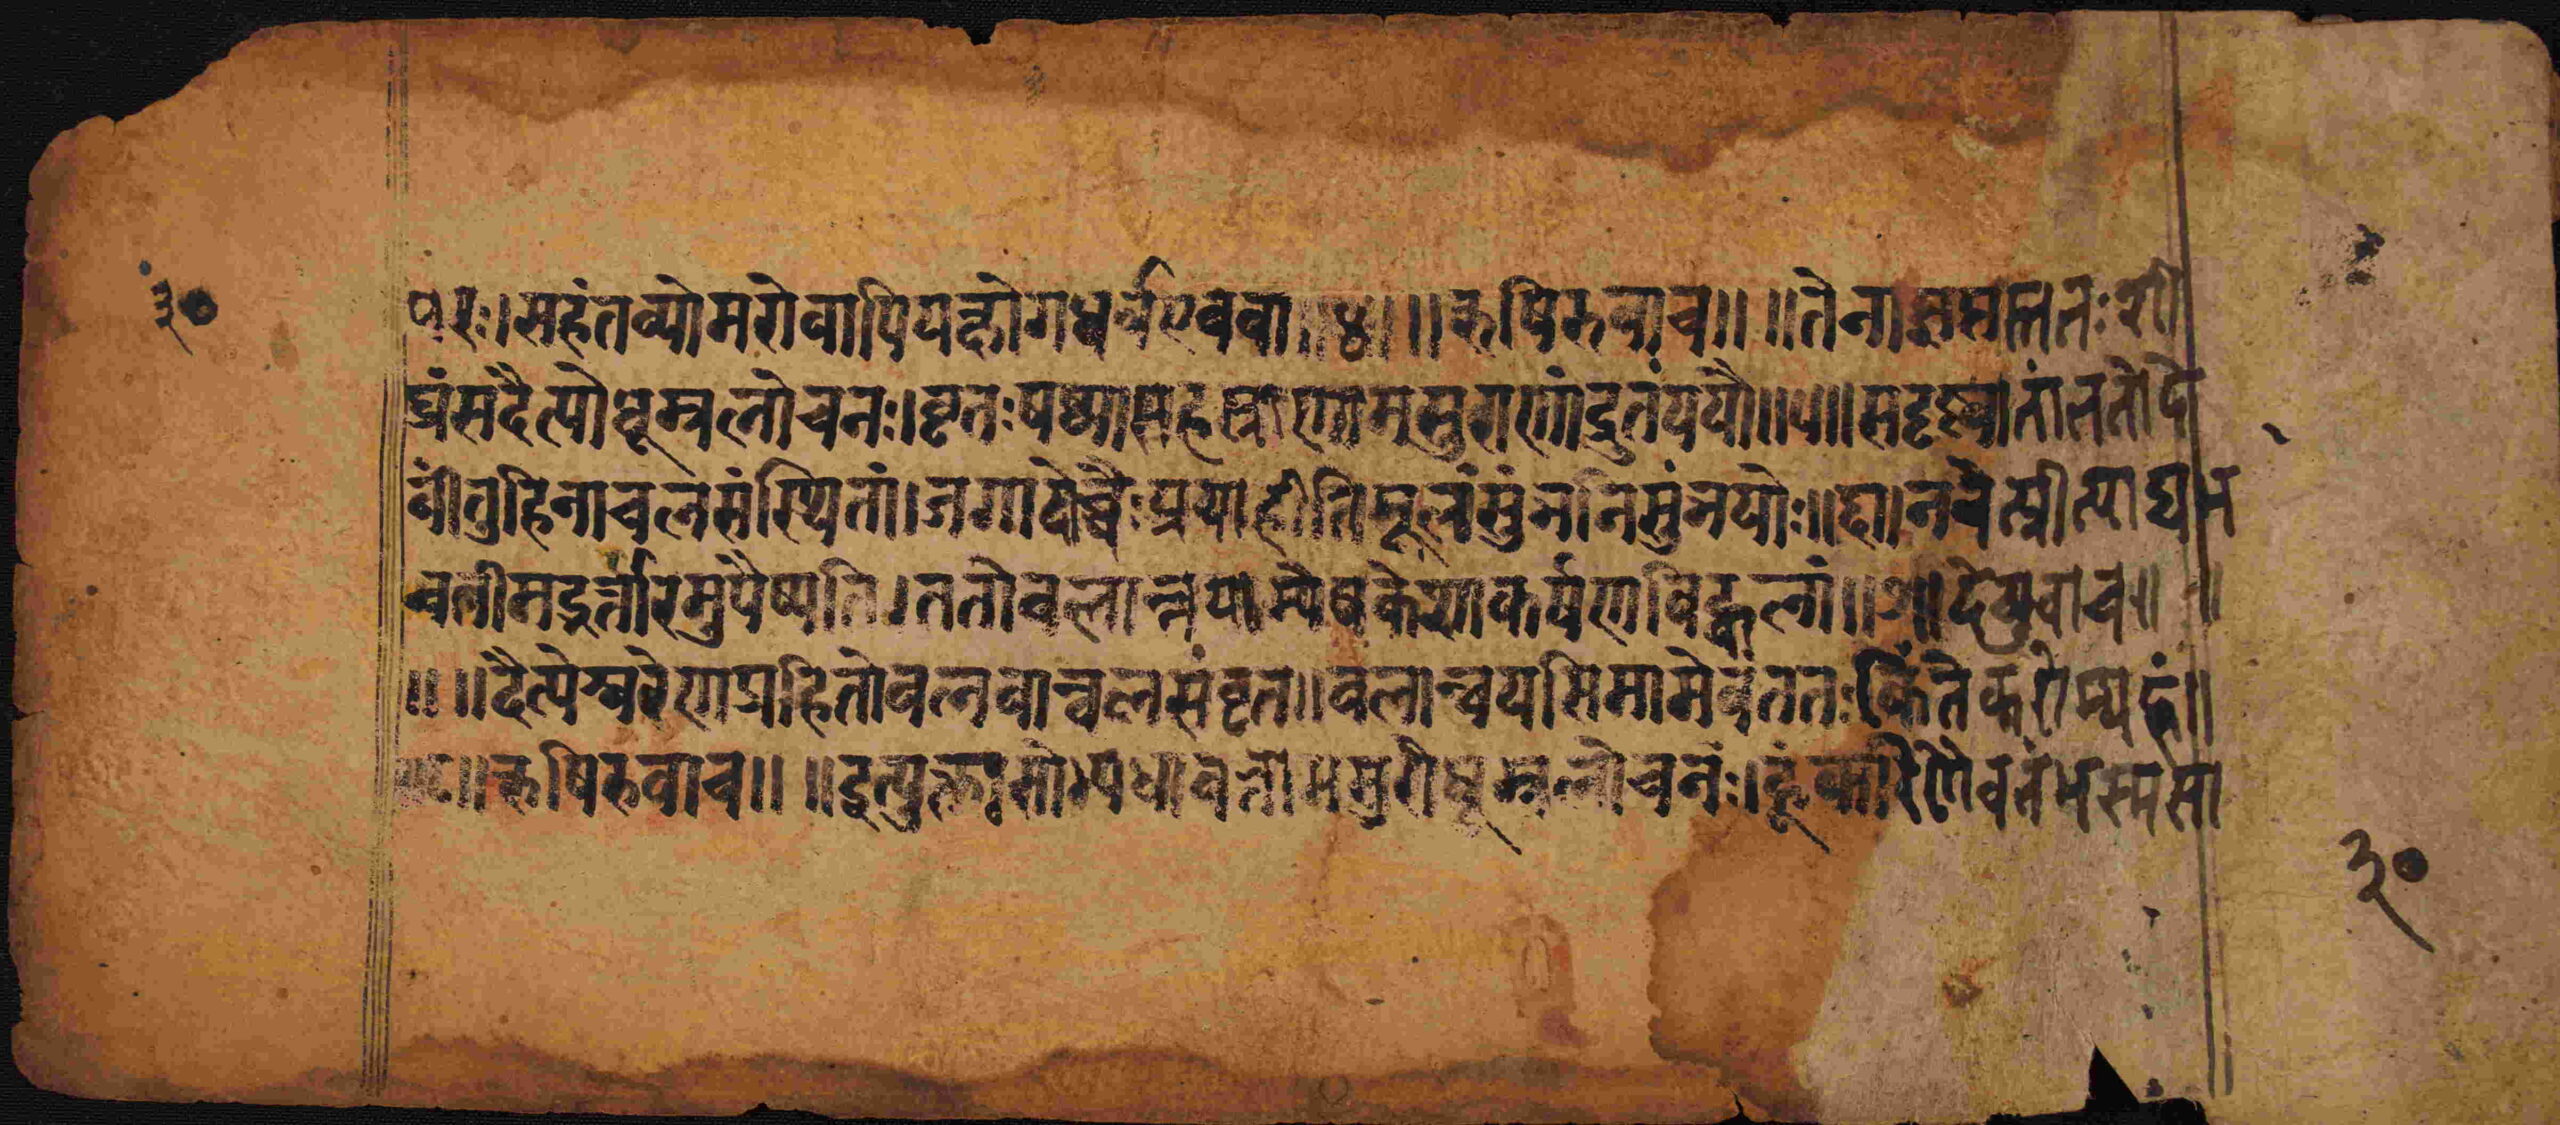 ३०
परः।सहंतव्योमरोवापियक्षोगधर्वएववा॥४॥ ॥ऋषिरुवाच॥ ॥तेनाज्ञप्तस्ततःशी
घ्रंसदैत्योधूम्रलोचनः।वृतःषष्ट्यासहस्त्राणामसुराणांद्रुतंययौ॥५॥सदृष्ट्वातांततोदे
वींतुहिनाचलसंस्थितां।जगादोच्चैःप्रयाहीतिमूलंसुंभनिसुंभयोः॥६॥नचेत्प्रीत्याद्यभ
वतीमद्भर्त्तारमुपैष्यति।ततोवलान्नयाम्येषकेशाकर्षणविह्वलां॥७॥देव्युवाच॥ ॥
॥ ॥दैत्येश्वरेणप्रहितोवलवान्वलसंवृत॥वलान्नयसिमामेवंततःकिंतेकरोम्यहं॥
॥८॥ऋषिरुवाच॥ ॥इत्युक्तःसोभ्यधावत्तामसुरोधूम्रलोचनः।हूंकारेणैवतंभस्मसा
३०